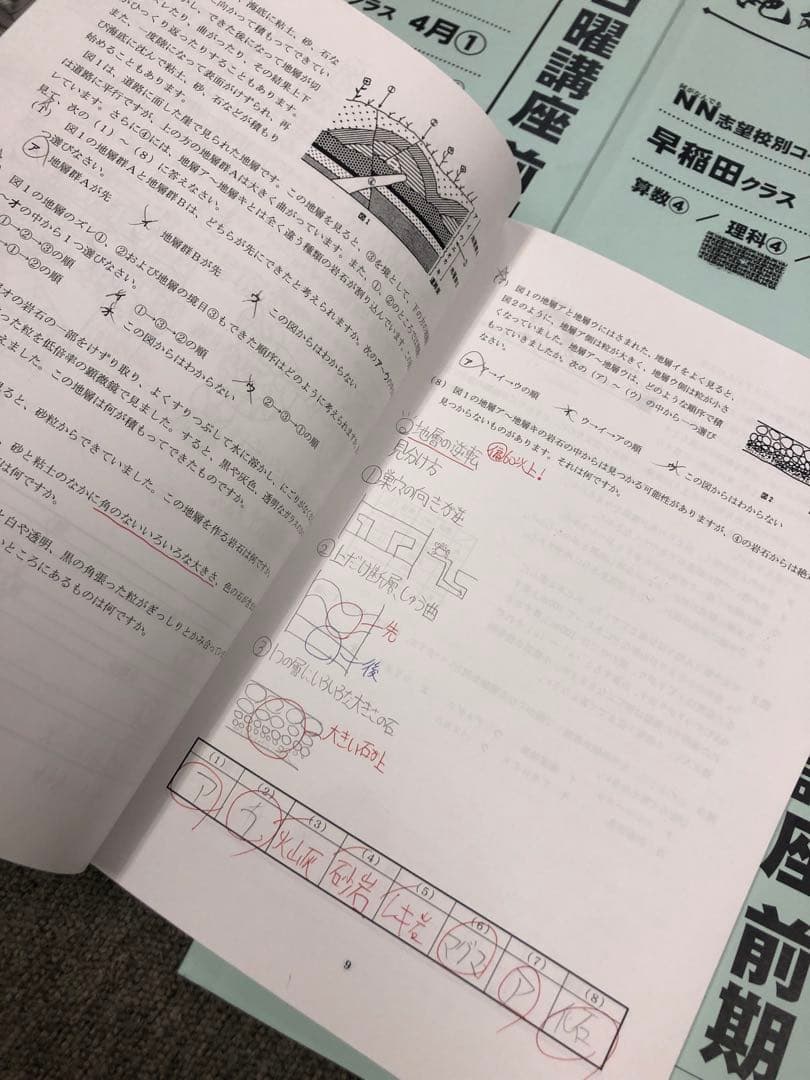 海底に粘土、砂、石な
に向かって積もってできてい
ずれたり、曲がったり、その結果上下
がひっくり返ったりすることもあります。
また、一度陸になって表面がけずられ、再
び海底に沈んで粘土、砂、石などが積もり
始めることもあります。
図1は、道路に面した崖で見られた地層です。この地層を見ると、③を境として、下の方の地層
は道路に平行ですが、上の方の地層群Aは大きく曲がっています。また、①、②のところでは
しています。さらに④には、地層ア〜地層キとは全く違う種類の岩石が割り込んでいます。
見て、次の(1)〜(8)に答えなさい。
図1の地層群Aと地層群Bは、どちらが先にできたと考えられますか。次のア〜ウ
選びなさい。
ア 地層群Aが先
イ 地層群Bが先
ウ この図からはわからない
図1の地層のズレ①、②および地層の境目③もできた順序はどのように考えられますか
〜オの中から1つ選びなさい。
①→②→③の順
イ ①→③→②の順
ウ ②→③→①の順
→②→①の順
オ この図からはわからない
オの岩石の一部をけずり取り、よくすりつぶして水に溶かし、にごりがなく
った粒を低倍率の顕微鏡で見ました。すると、黒や灰色、透明なガラスの
えました。この地層は何が積もってできたものですか。
見ると、砂粒からできていました。この地層を作る岩石は何ですか
、砂と粘土のなかに角のないいろいろな大きさ、色の石が
は何ですか。
と白や透明、黒の角張った粒がぎっしりとかみ合って
いところにあるものは何ですか。
図1
図1の地層アと地層ウにはさまれた、地層イをよく見ると、
図2のように、地層ア側は粒が大きく、地層ウ側は粒が小さ
くなっていました。地層ア〜地層ウは、どのような順序で積
もっていきましたか。次の(ア)〜(ウ)の中から一つ選び
なさい。
ア ア→イ→ウの順
イ ウ→イ→アの順
ウ この図からはわからない
図2
(8) 図1の地層ア〜地層キの岩石の中からは見つかる可能性がありますが、④の岩石からは絶
見つからないものがあります。それは何ですか。
地層の逆転
見分け方
偏60以上!
①巣穴の向き方逆
②上だけ断層、しゅう曲
先
後
③1つの層にいろいろな大きさの石
大きい石が上
(1) (2) (3) (4) (5) (6) (7) (8)
ア ウ 火山灰 砂岩 レキ岩 マグマ ア 化石
9
クラス 4月①
日曜講座 前
NN志望校別コー
早稲田クラス
算数④ / 理科④
講座 前期